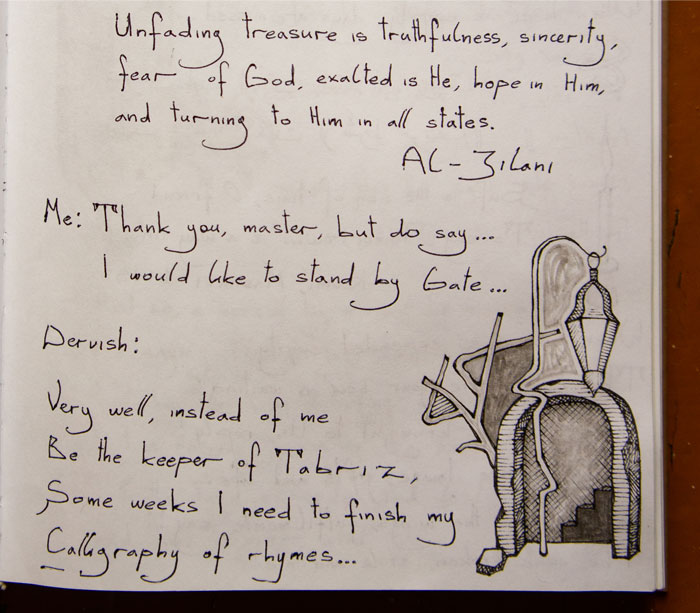 Unfading treasure is truthfulness, sincerity,
fear of God, exalted is He, hope in Him,
and turning to Him in all states.
Al-Jilani
Me: Thank you, master, but do say...
I would like to stand by Gate...
Dervish:
Very well, instead of me
Be the keeper of Tabriz,
Some weeks I need to finish my
Calligraphy of rhymes...